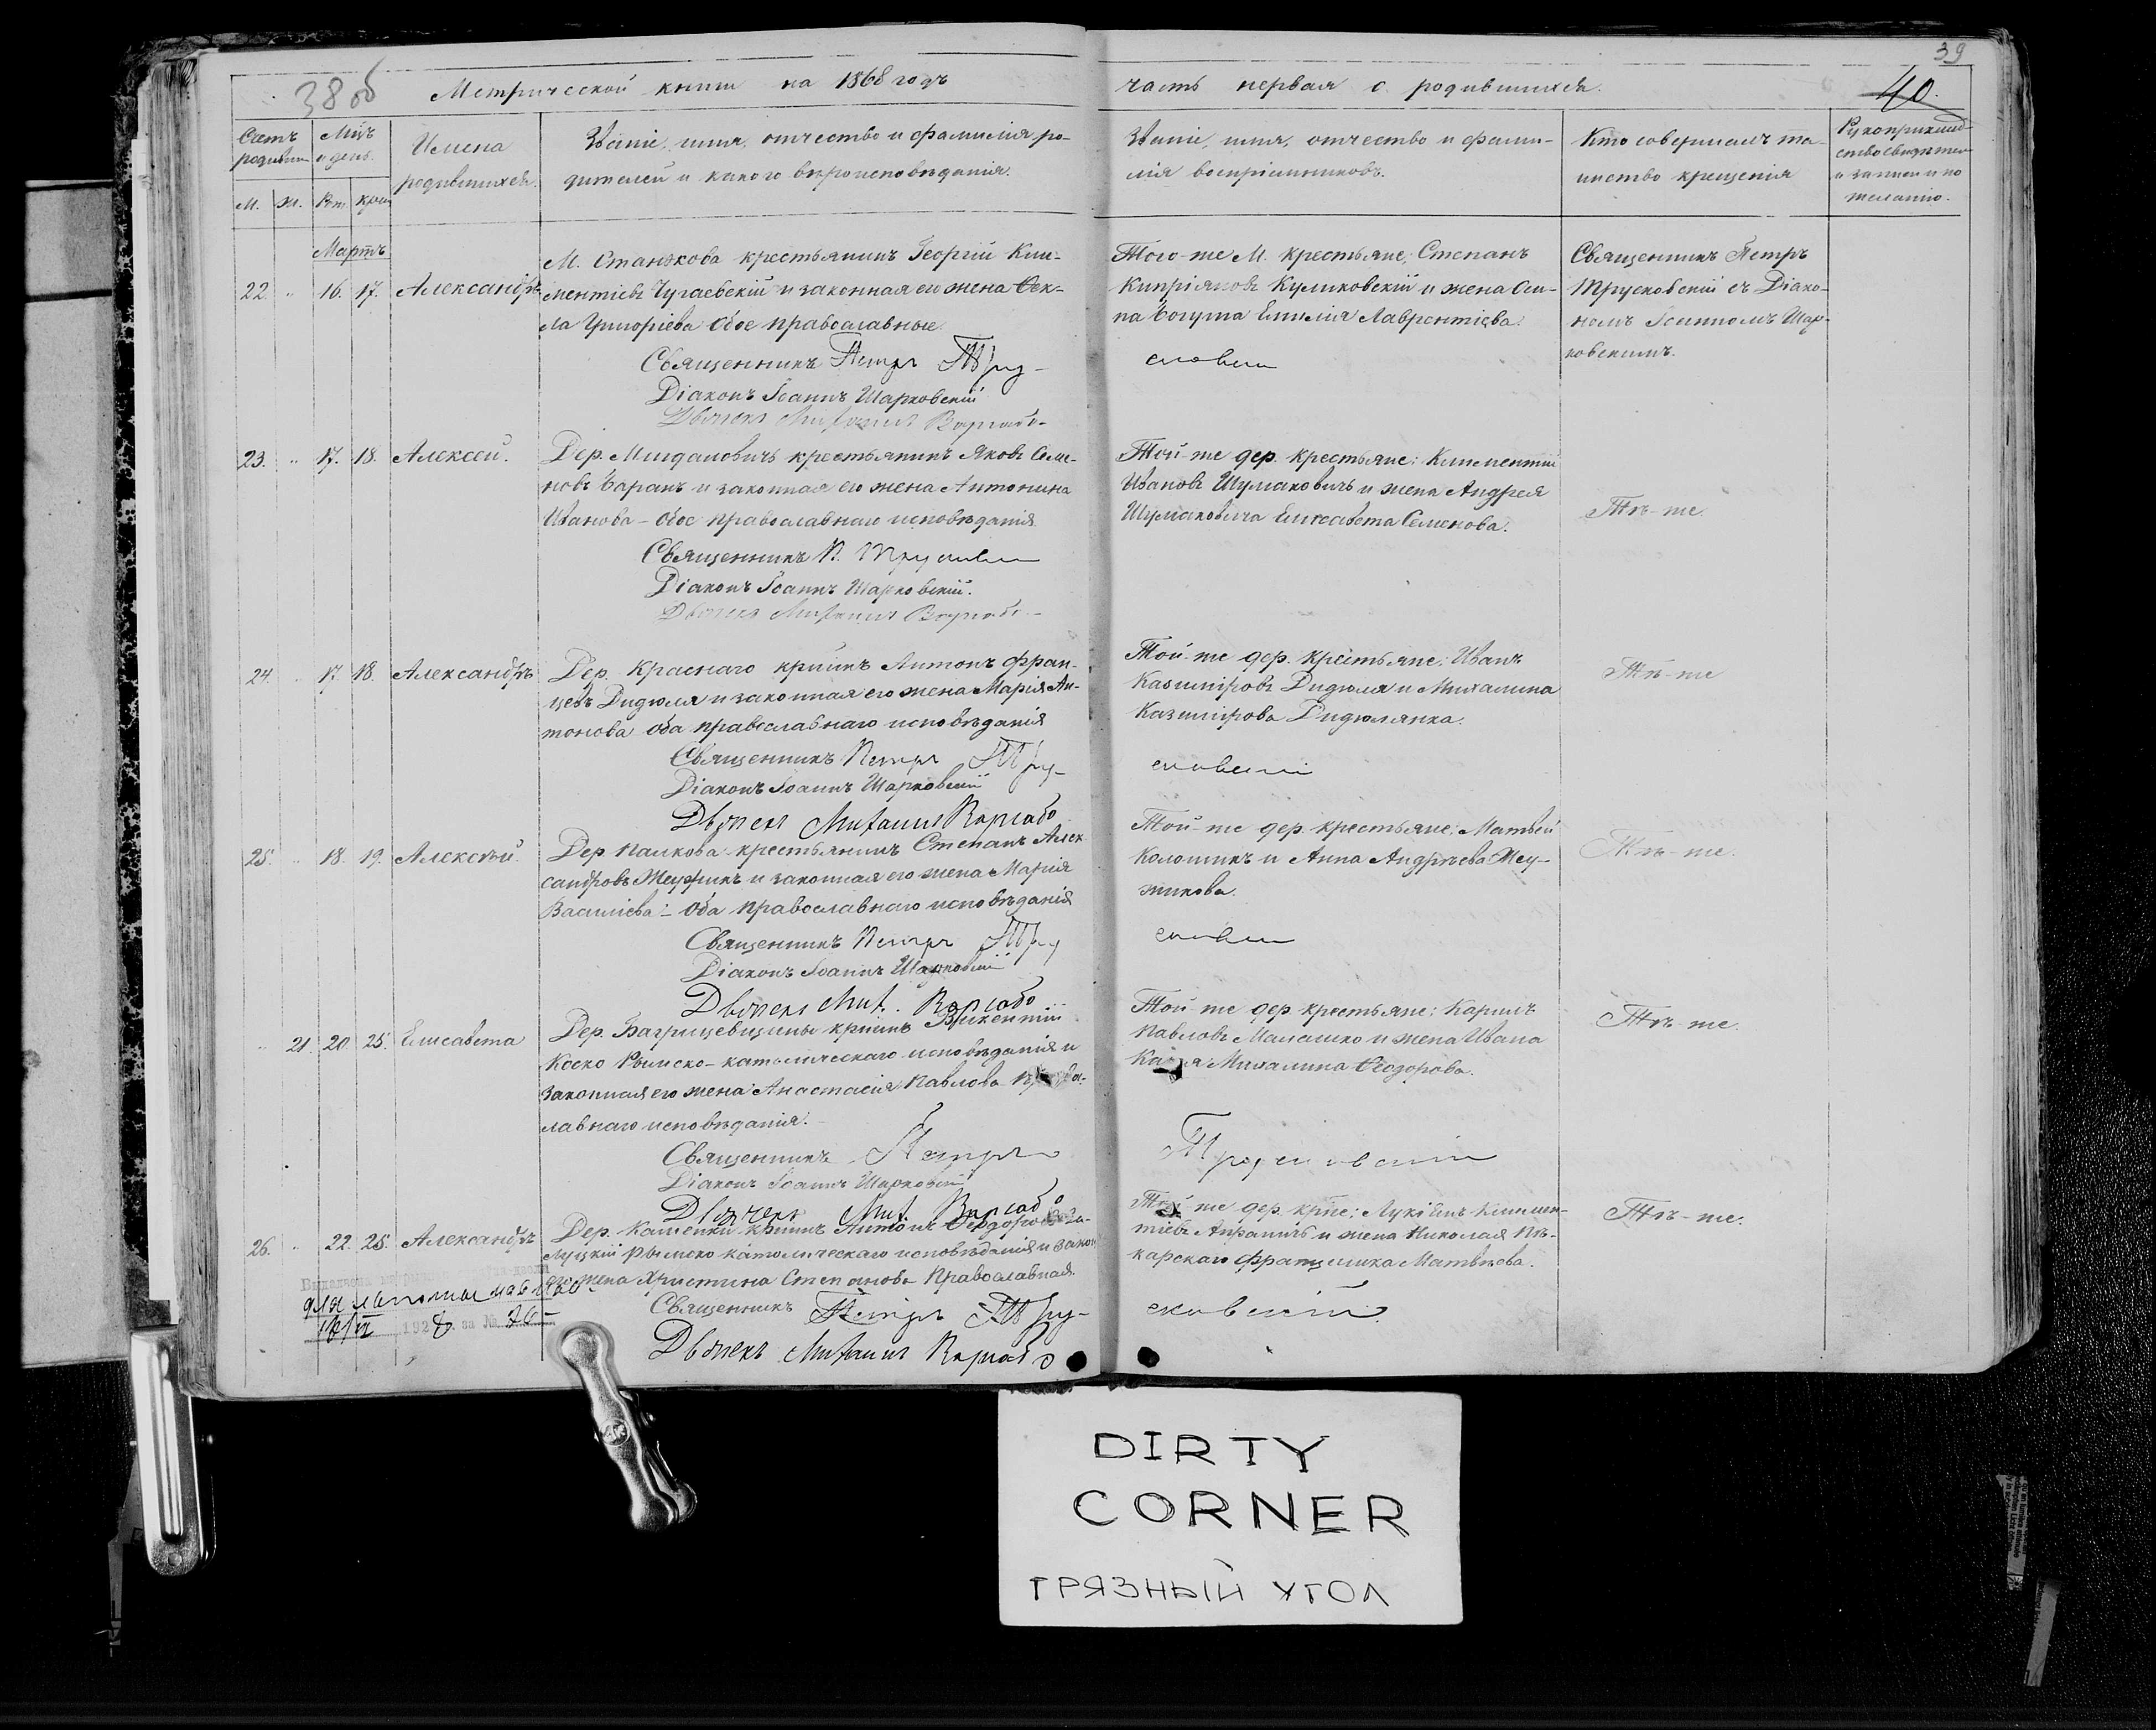 39
38 об
Метрической книги на 1868 годъ
часть первая о родившихся.
40.
Счетъ родивш.
Мцъ и день.
Имена родившихся.
Званіе, имя, отчество и фамилія ро-
дителей и какого вѣроисповѣданія.
Званіе, имя, отчество и фами-
лія воспріемниковъ.
Кто совершалъ та-
инство крещенія
Рукоприклад-
ство свидѣтел.
о записи по
желанію.
М. Ж. Рож. Крещ.
Мартъ
22. " 16. 17. Александръ
М. Станькова крестьянинъ Георгій Кли-
ментіевъ Чугаевскій и законная его жена Ѳек-
ла Григоріева обое православные.
Священникъ Петръ Тру-
сковскій
Діаконъ Іоаннъ Шарковскій
Дьячекъ Михаилъ
Того-же М. крестьяне: Степанъ
Кипріяновъ Куликовскій и жена Оси-
па Богуша Емилія Лаврентіева.
Священникъ Петръ
Трусковскій съ Діако-
номъ Іоанномъ Шар-
ковскимъ.
23. " 17. 18. Алексей.
Дер. крестьянинъ Яковъ Семе-
новъ Баранъ и законная его жена Антонина
Иванова - обое православнаго исповѣданія.
Священникъ П. Трусковскій
Діаконъ Іоаннъ Шарковскій.
Дьячекъ Михаилъ
Той-же дер. крестьяне: Климентій
Ивановъ Шумаковичъ и жена Андрея
Шумаковича Елисавета Семенова.
Тѣ-же.
24. " 17 18. Александръ
Дер. Краснаго крнинъ Антонъ Фран-
цевъ Дидюля и законная его жена Марія Ан-
тонова оба православнаго исповѣданія
Священникъ Петръ Тру-
сковскій
Діаконъ Іоаннъ Шарковскій
Дьячекъ Михаилъ
Той-же дер. крестьяне: Иванъ
Казиміровъ Дидюля и Михалина
Казимірова Дидюлянка.
Тѣ-же
25. " 18. 19. Алексѣй.
Дер. крестьянинъ Степанъ Алек-
сандровъ и законная его жена Марія
Василіева - оба православнаго исповѣданія
Священникъ Петръ Тру
сковскій
Діаконъ Іоаннъ Шарковскій
Дьячекъ Мих.
Той-же дер. крестьяне: Матвей
и Анна Андрѣева
Тѣ-же.
" 21. 20 25. Елисавета
Дер. Багрицевщины крнинъ Викентій
Коско Римско-католическаго исповѣданія и
законная его жена Анастасія Павлова Правос-
лавнаго исповѣданія.
Священникъ Петръ
Трусковскій
Діаконъ Іоаннъ Шарковскій
Дьячекъ Мих.
Той-же дер. крестьяне:
Павловъ Малашко и жена Ивана
Михалина Ѳеодорова.
Тѣ-же.
26. " 22. 25. Александръ
Дер. Каменки крнинъ Антонъ За-
луцкій Римско католическаго исповѣданія и закон.
его жена Христина Степанова Православная.
Священникъ Петръ Тру-
сковскій.
Дьячекъ Михаилъ
Той-же дер. крне:
и жена Николая
Матвѣева.
Тѣ-же.
192 8 за № 26
DIRTY
CORNER
ГРЯЗНЫЙ УГОЛ